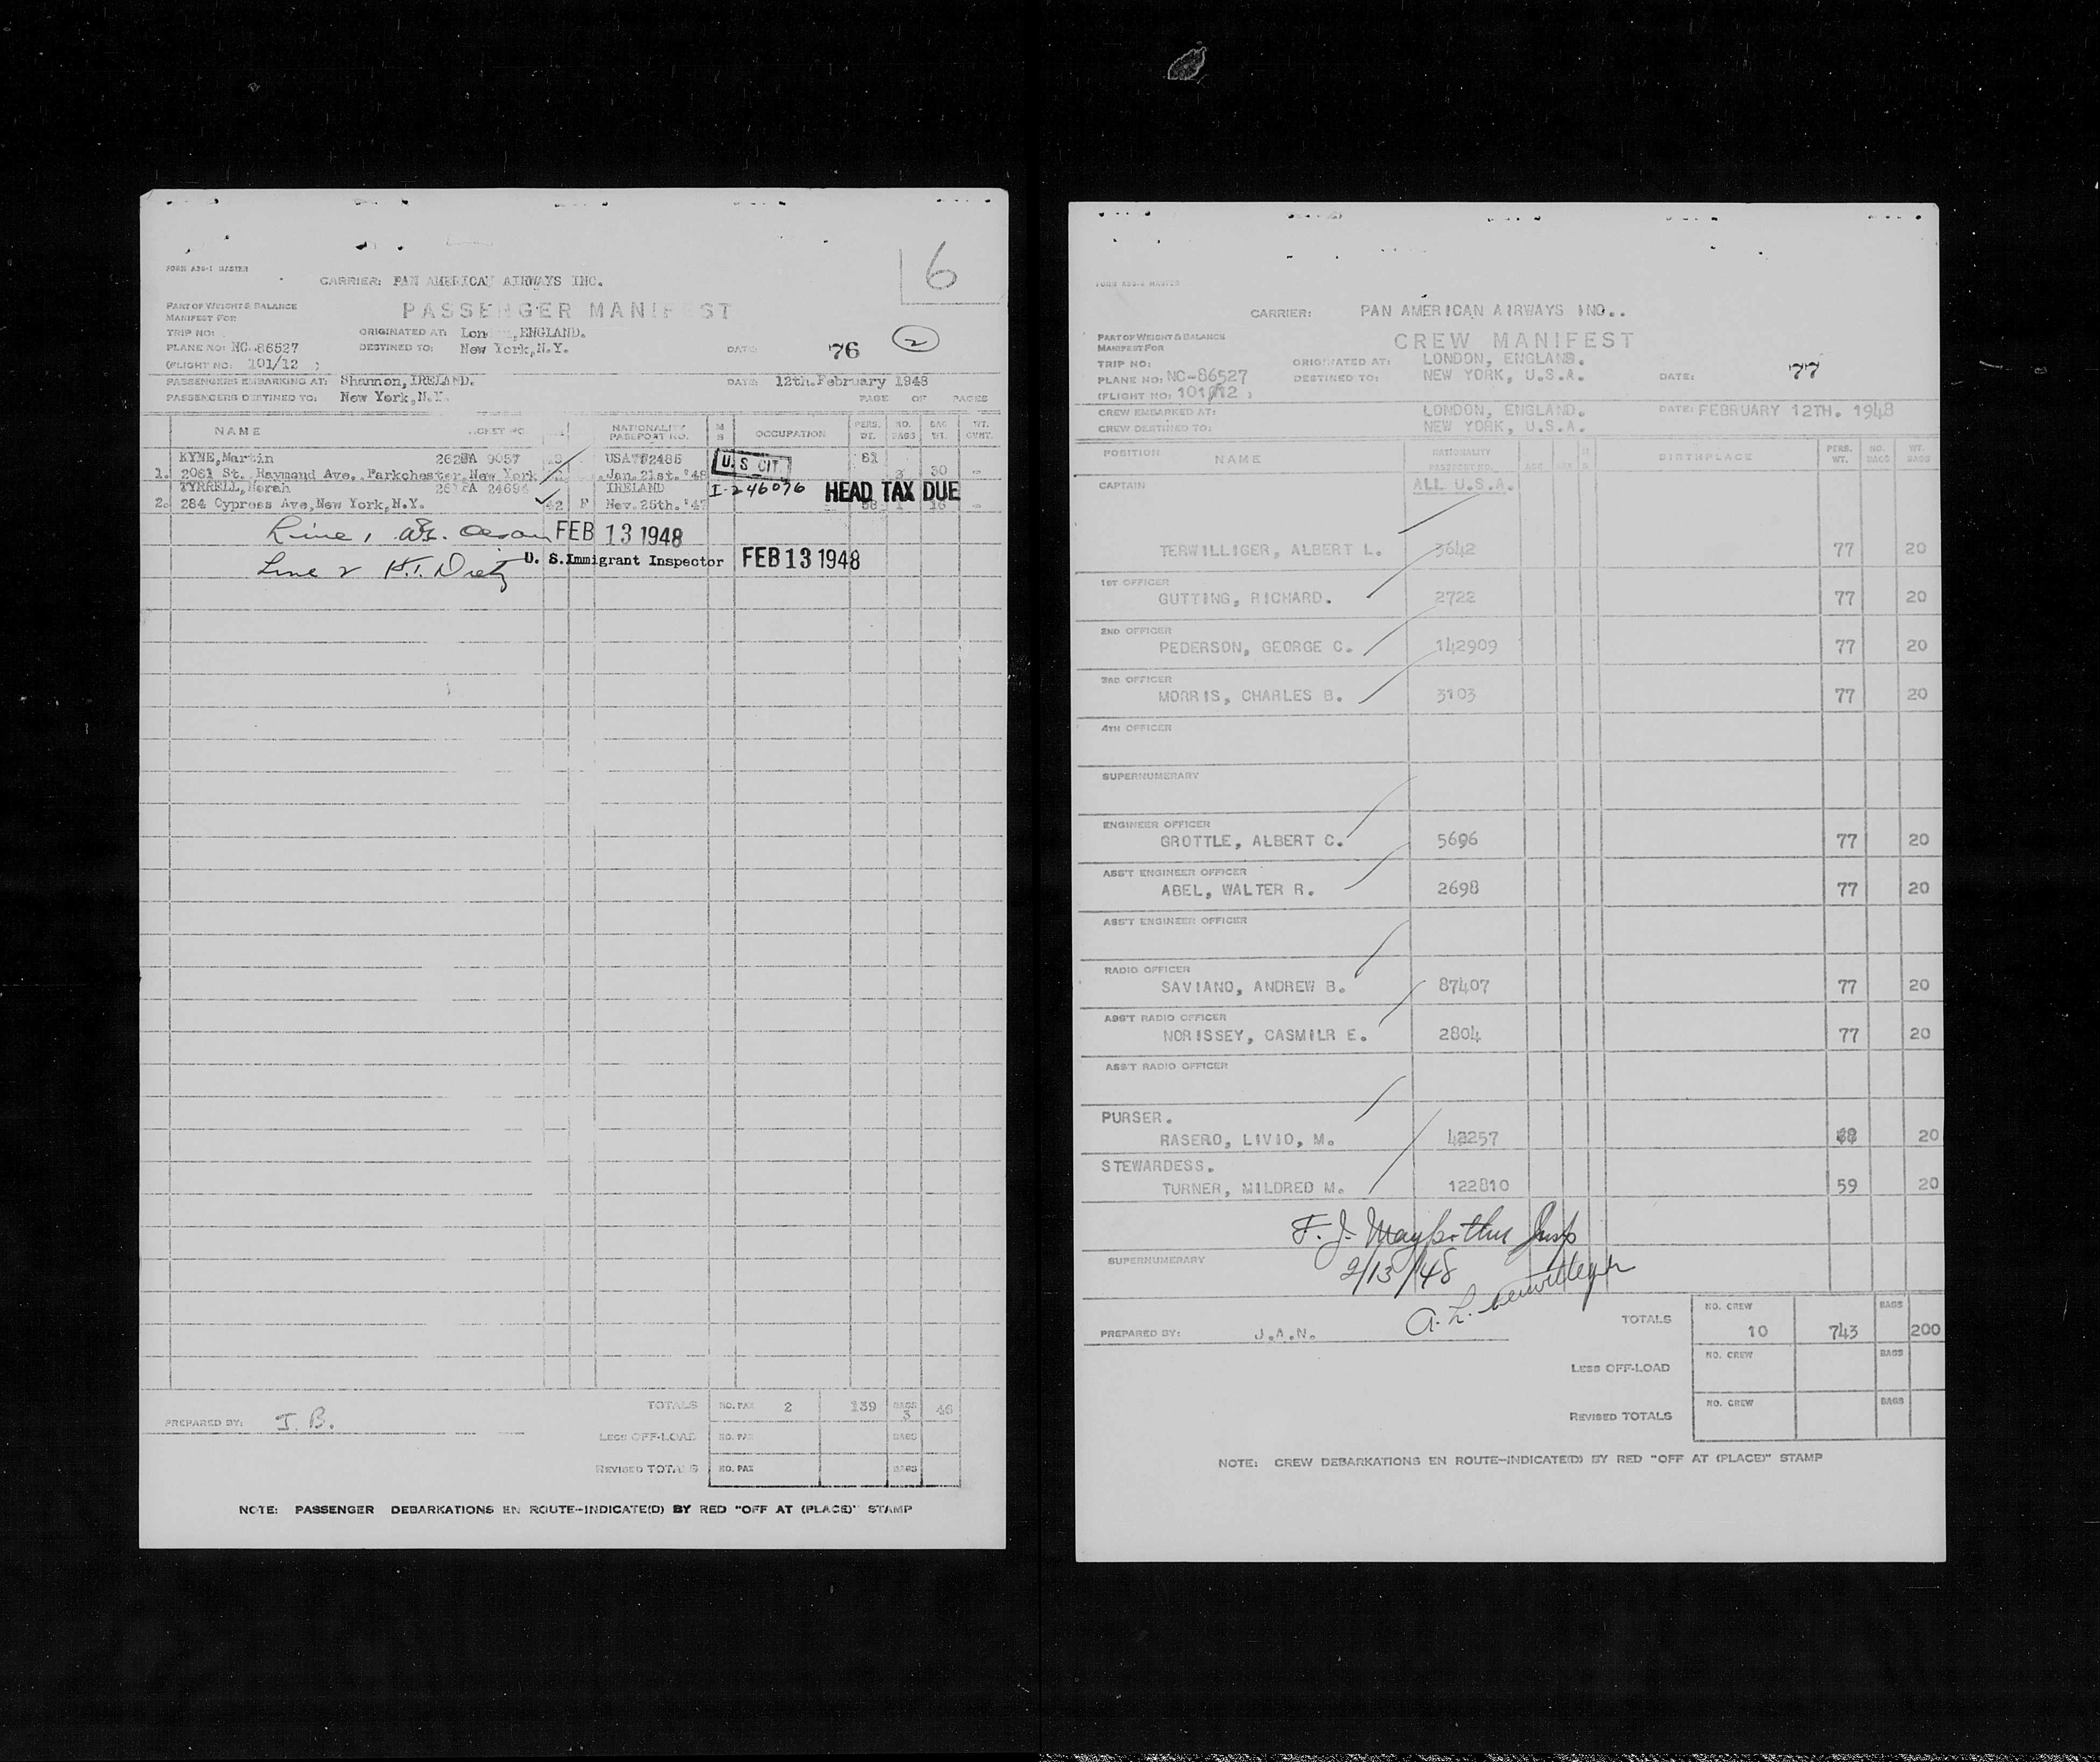 6
FORM ABG-1 MASTER
CARRIER: PAN AMERICAN AIRWAYS INC.
PART OF WEIGHT & BALANCE
MANIFEST FOR
PASSENGER MANIFEST
TRIP NO:
ORIGINATED AT: Lon ,ENGLAND.
PLANE NO: NC.86527
DESTINED TO: New York,N.Y.
DATE
76
2
(FLIGHT NO: 101/12 )
PASSENGERS EMBARKING AT: Shannon,IRELAND.
DATE: 12th.February 1948
PASSENGERS DESTINED TO: New York,N.Y.
PAGE OF PAGES
NAME
TICKET NO.
NATIONALITY
PASSPORT NO.
OCCUPATION
PERS.
NO.
BAGS
BAG
WT.
WT.
KYNE,Martin
9057
81
U.S CIT
1. 2061 St. Raymond Ave. Parkchester,New York
Jan.21st.'48
3 30 -
TYRRELL,Norah
24694
IRELAND
I-246076
HEAD TAX DUE
2. 284 Cypress Ave,New York,N.Y.
42 F Nov.25th.'47
58 1 16 -
Line 1
FEB 13 1948
Line 2 H.T. Dietz
U. S. Immigrant Inspector
FEB 13 1948
TOTALS NO. PAX 2 139 BAGS 3 46
PREPARED BY: J.B.
LESS OFF-LOAD NO. PAX BAGS
REVISED TOTALS NO. PAX BAGS
NOTE: PASSENGER DEBARKATIONS EN ROUTE-INDICATE(D) BY RED "OFF AT (PLACE)" STAMP
CARRIER: PAN AMERICAN AIRWAYS INC..
PART OF WEIGHT & BALANCE
MANIFEST FOR
CREW MANIFEST
TRIP NO:
ORIGINATED AT: LONDON, ENGLAND.
PLANE NO: NC-86527
DESTINED TO: NEW YORK, U.S.A.
DATE:
77
(FLIGHT NO: 101/12 )
CREW EMBARKED AT: LONDON, ENGLAND.
DATE: FEBRUARY 12TH. 1948
CREW DESTINED TO: NEW YORK, U.S.A.
POSITION
NAME
NATIONALITY
PASSPORT NO.
AGE
SEX
BIRTHPLACE
PERS.
WT.
NO.
BAGS
WT.
BAGS
CAPTAIN
ALL U.S.A.
TERWILLIGER, ALBERT L. 3642 77 20
1ST OFFICER
GUTTING, RICHARD. 2722 77 20
2ND OFFICER
PEDERSON, GEORGE C. 142909 77 20
3RD OFFICER
MORRIS, CHARLES B. 3103 77 20
4TH OFFICER
SUPERNUMERARY
ENGINEER OFFICER
GROTTLE, ALBERT C. 5696 77 20
ASS'T ENGINEER OFFICER
ABEL, WALTER R. 2698 77 20
ASS'T ENGINEER OFFICER
RADIO OFFICER
SAVIANO, ANDREW B. 87407 77 20
ASS'T RADIO OFFICER
NORISSEY, CASMILR E. 2804 77 20
ASS'T RADIO OFFICER
PURSER.
RASERO, LIVIO, M. 42257 20
STEWARDESS.
TURNER, MILDRED M. 122810 59 20
F. J.
SUPERNUMERARY
2/13/48
A. L. Terwilliger
TOTALS NO. CREW 10 743 BAGS 200
PREPARED BY: J.A.N.
LESS OFF-LOAD NO. CREW BAGS
REVISED TOTALS NO. CREW BAGS
NOTE: CREW DEBARKATIONS EN ROUTE-INDICATE(D) BY RED "OFF AT (PLACE)" STAMP